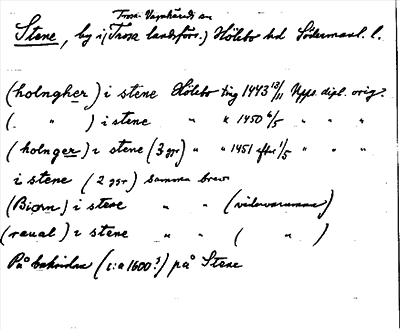 Trosa-Vagnhärads sn
Stene, by i (Trosa landsförs.) Hölebo hd Södermanl. l.
(holngher) i stene Hölebo ting 1443 13/11 Upps. dipl. orig?
( " ) i stene " " 1450 6/5 " " "
(holnger) i stene (3 ggr) " " 1451 efter 1/5 " " "
i stene (2 ggr) samma brev
(Biorn) i stene " " (vidervarumæn)
(raual) i stene " " ( " )
På baksidan (c:a 1600?) på Stene